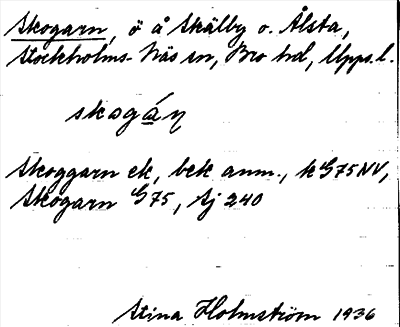 Skogarn, ö å Skälby o. Ålsta,
Stockholms-Näs sn, Bro hd, Upps.l.
skogáṇ
Skoggarn ek, bek anm., k G75NV,
Skogarn G75, Sj 240
Stina Holmström 1936